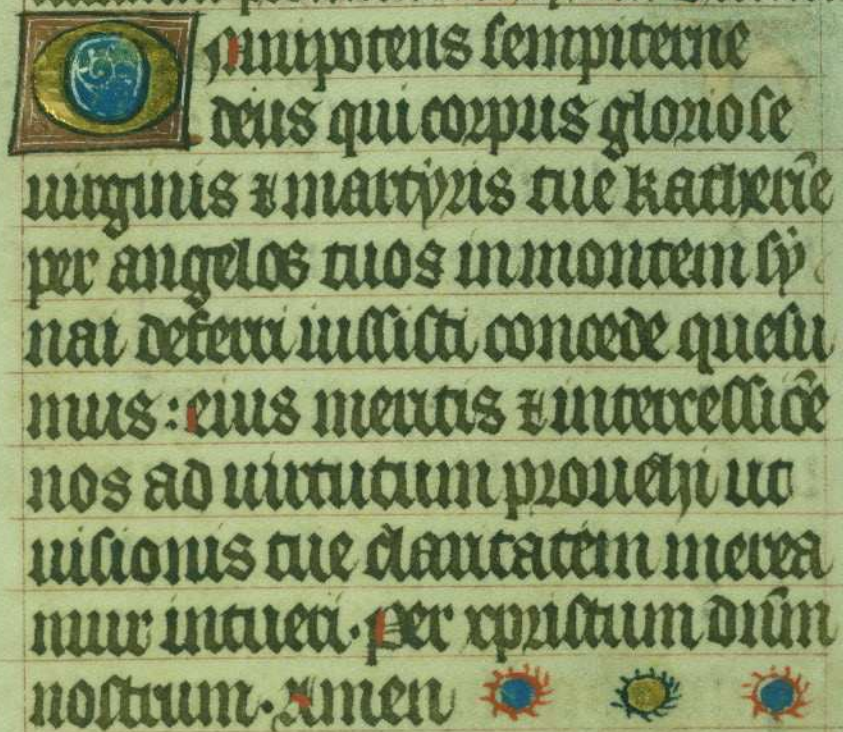 Omnipotens sempiterne
deus qui corpus gloriose
uirginis ⁊ martyris tue katherīe
per angelos tuos in montem sy
nai deferri iussisti concede quesu
mus : eius meritis ⁊ intercessiōe
nos ad uirtutum prouehi ut
uisionis tue claritatem merea
mur intueri. per xpristum dn̄m
nostrum. Amen